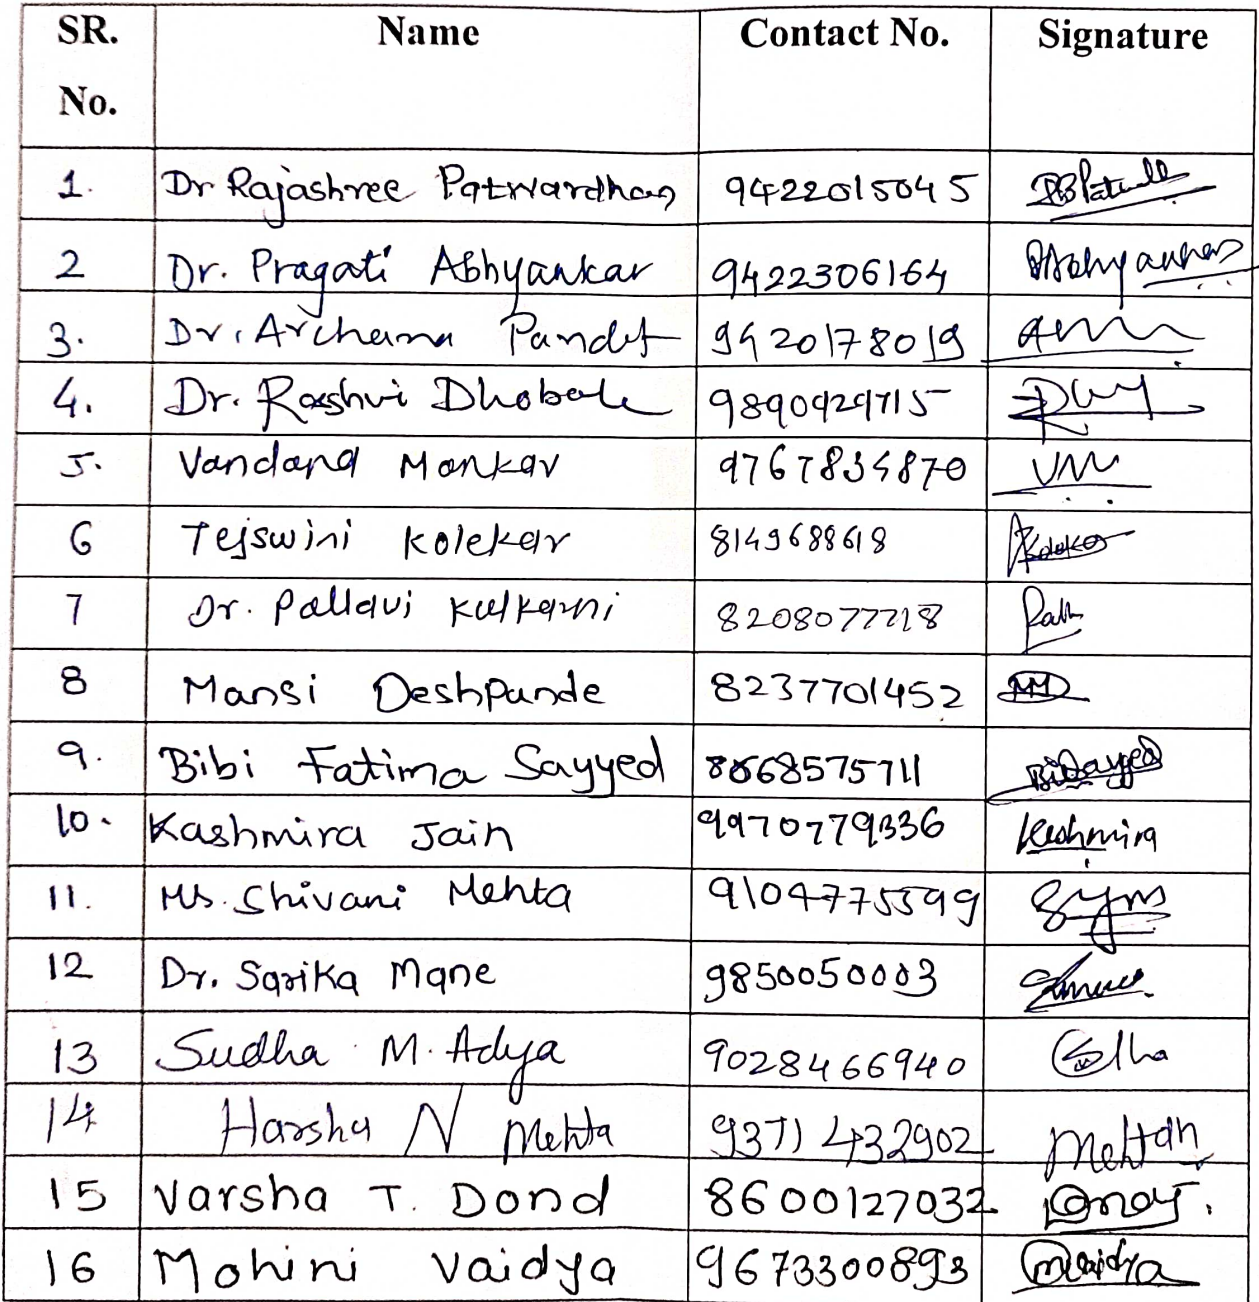 SR. No. Name Contact No. Signature
1. Dr Rajashree Patwardhan 9422015045
2 Dr. Pragati Abhyankar 9422306164 Abhyankar
3. Dr. Archana Pandit 9420178019
4. Dr. Rashvi Dhobale 9890929715
5. Vandana Mankar 9767834870 VM
6 Tejswini Kolekar 8149688618
7 Dr. Pallavi Kulkarni 8208077718
8 Mansi Deshpande 8237701452 MD
9. Bibi Fatima Sayyed 8668575711 BiSayyed
10. Kashmira Jain 9970779336 Kashmira
11. Ms. Shivani Mehta 9104775599
12 Dr. Sarika Mane 9850050003
13 Sudha M. Adya 9028466940
14 Harsha N Mehta 9371432902 Mehtah
15 Varsha T. Dond 8600127032
16 Mohini Vaidya 9673300893 mvaidya